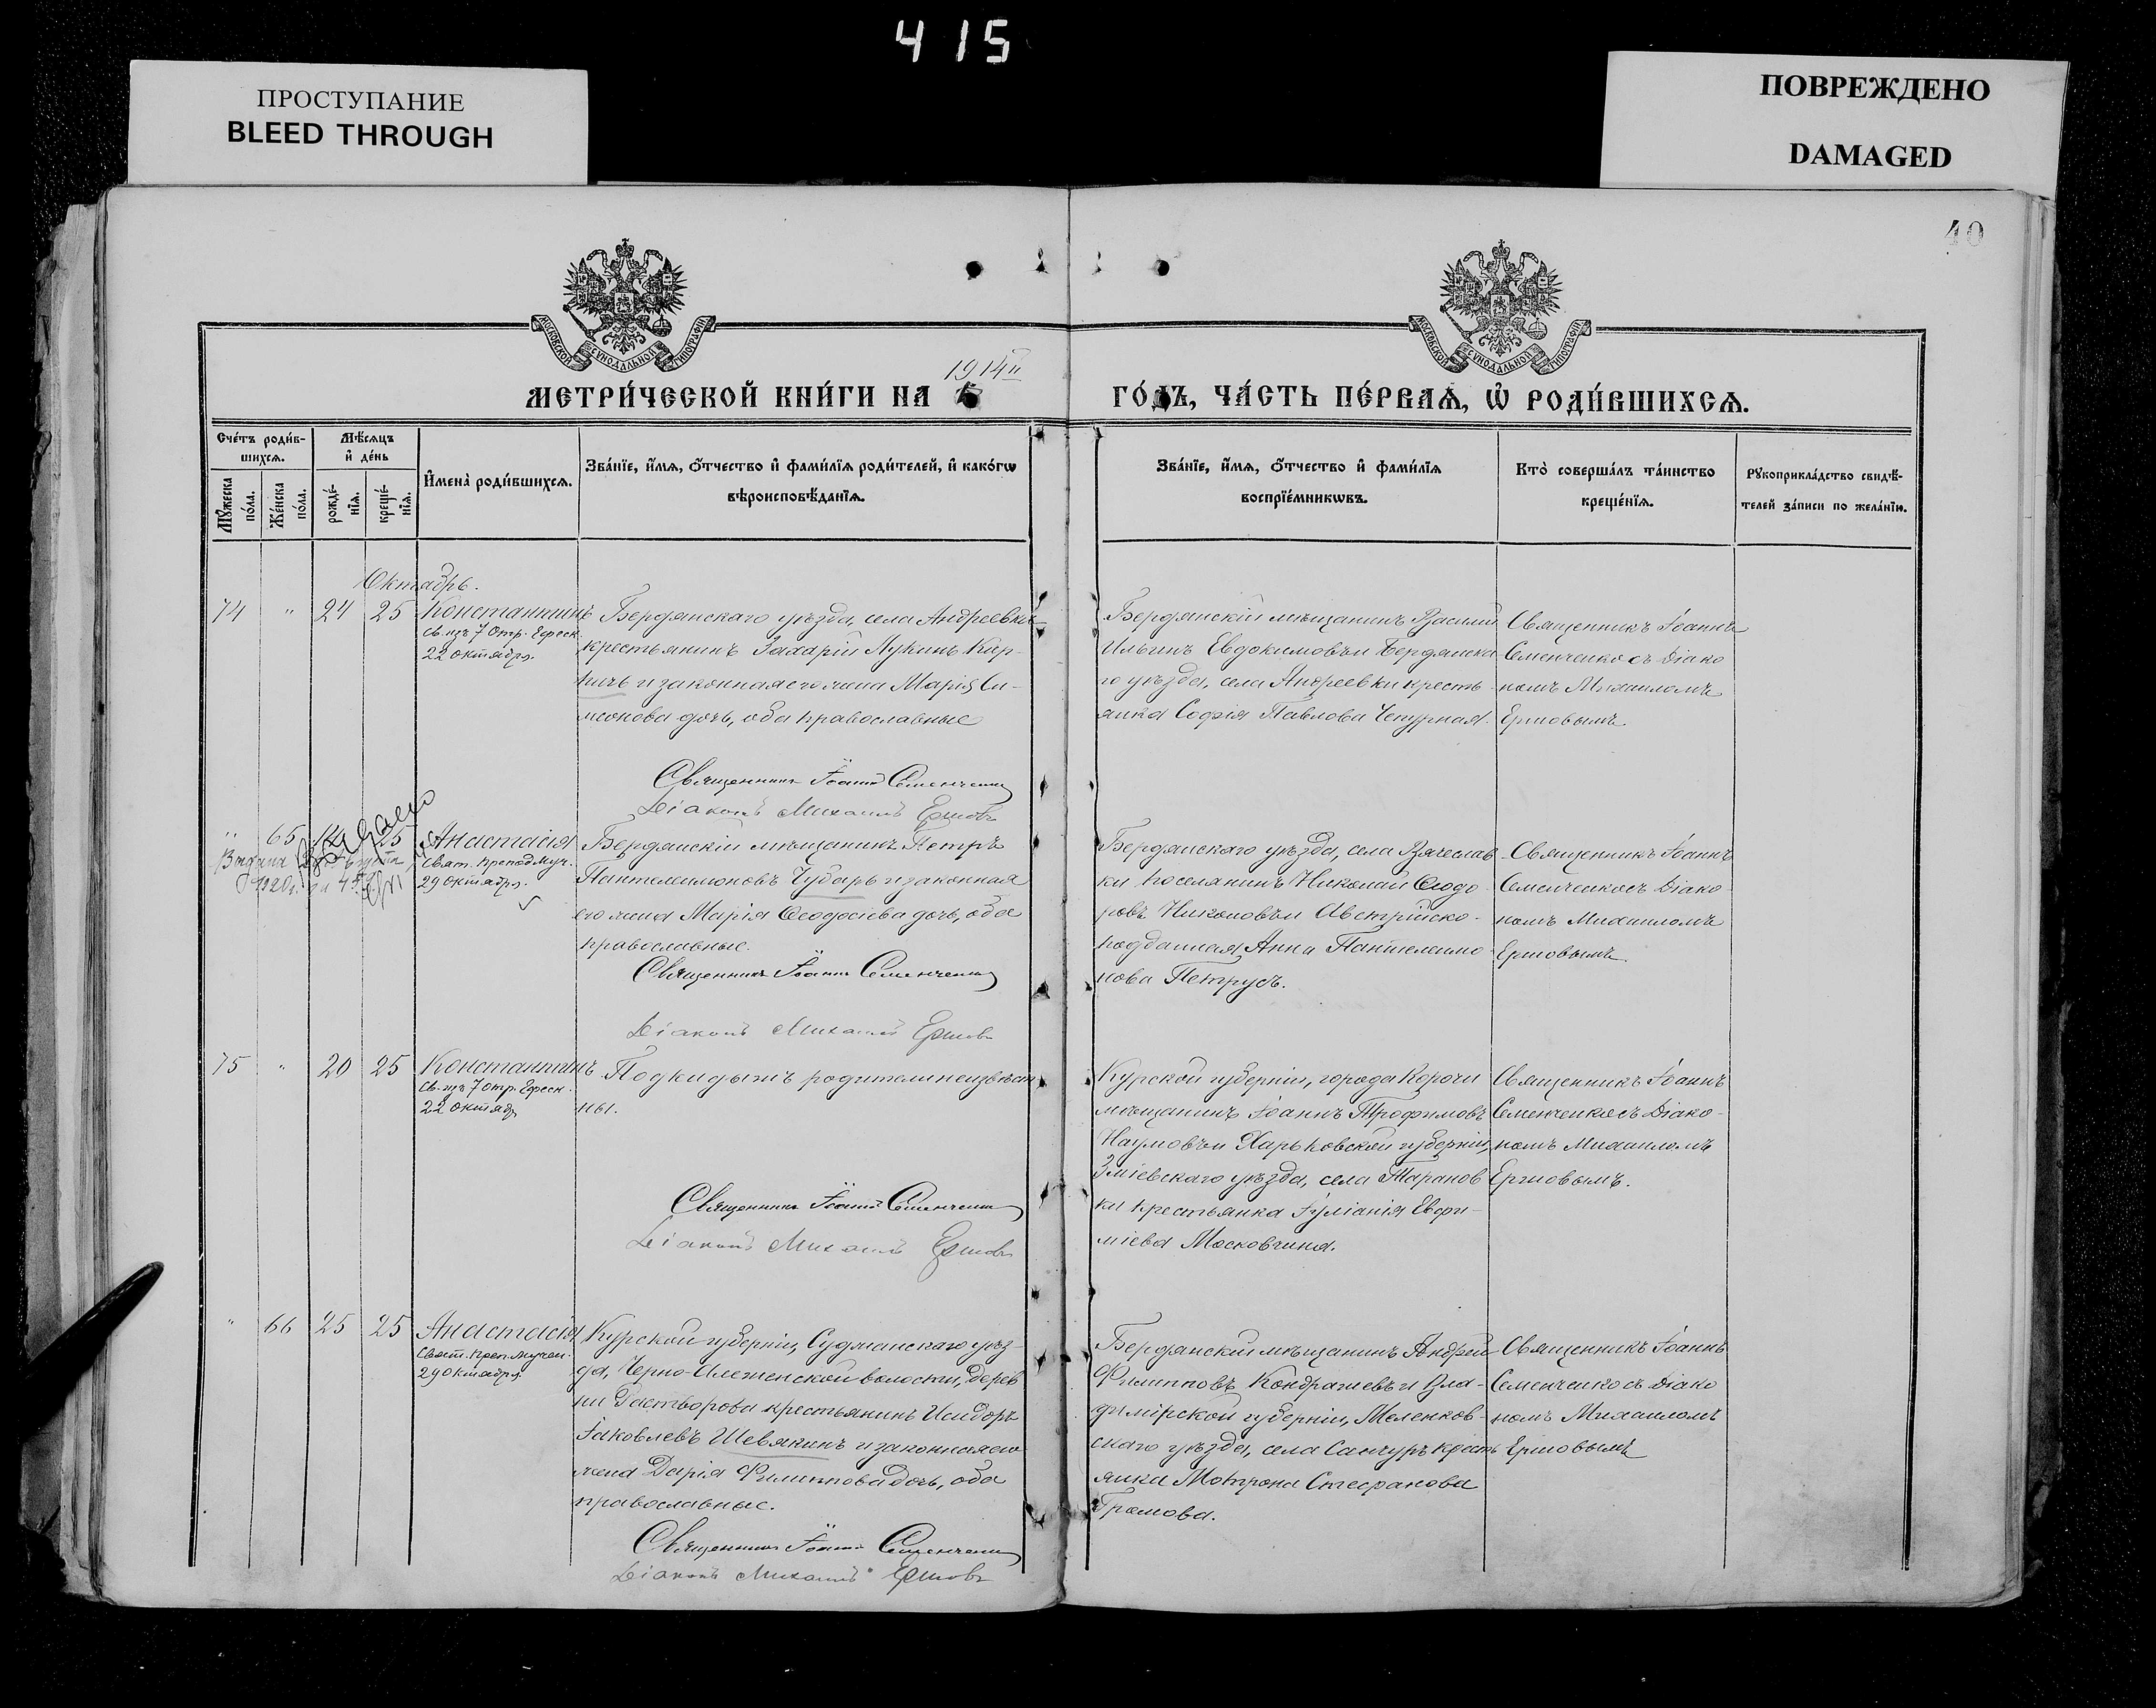 415
ПРОСТУПАНИЕ
BLEED THROUGH
ПОВРЕЖДЕНО
DAMAGED
40
МОСКОВСКОЙ СѴНОДАЛЬНОЙ ТИПОГРАФІИ
МОСКОВСКОЙ СѴНОДАЛЬНОЙ ТИПОГРАФІИ
1914
МЕТРИ́ЧЕСКОЙ КНИ́ГИ НА
ГО́ДЪ, ЧА́СТЬ ПЕ́РВАѦ, Ѡ РОДИ́ВШИХСѦ.
Сче́тъ роди́в-
шихсѧ.
Мѣ́сѧцъ
и де́нь
Му́жеска
по́ла.
Же́нска
по́ла.
рожде́-
нїѧ.
креще́-
нїѧ.
Имена̀ роди́вшихсѧ.
Зва́нїе, и́мѧ, о́тчество и фами́лїѧ роди́телей, и како́гѡ
вѣроисповѣ́данїѧ.
Зва́нїе, и́мѧ, о́тчество и фами́лїѧ
воспрїе́мникѡвъ.
Кто̀ соверша́лъ та́инство
креще́нїѧ.
Рукоприкла́дство свидѣ́-
телей за́писи по жела́нїю.
Октябрь.
74 " 24 25 Константинъ
св. изъ 7 Отр. Ефеск.
22 октября.
Бердянскаго уѣзда, села Андреевки
крестьянинъ Захарій Лукинъ Кир-
пичъ и законная его жена Марія Си-
меонова дочь, оба православные
Священникъ Іоаннъ Семенченко
Діаконъ Михаилъ Ершовъ
Бердянскій мѣщанинъ Василій
Ильинъ Евдокимовъ и Бердянска-
го уѣзда, села Андреевки кресть-
янка Софія Павлова Чепурная.
Священникъ Іоаннъ
Семенченко съ Діако
номъ Михаиломъ
Ершовымъ.
" 65 25 Анастасія
Свят. Препод. Муч.
29 октября.
Выдана
1920 г.
Бердянскій мѣщанинъ Петръ
Пантелеимоновъ Чубарь и законная
его жена Марія Ѳеодосіева дочь, оба
православные.
Священникъ Іоаннъ Семенченко
Діаконъ Михаилъ Ершовъ
Бердянскаго уѣзда, села Вячеслав-
ки поселянинъ Николай Ѳеодо-
ровъ Никоновъ и Австрійско-
подданная Анна Пантелеимо-
нова Петрусъ.
Священникъ Іоаннъ
Семенченко съ Діако-
номъ Михаиломъ
Ершовымъ.
75 " 20 25 Константинъ
Св. изъ 7 отр. Ефеск.
22 октяб.
Подкидышъ родители неизвѣст-
ны.
Священникъ Іоаннъ Семенченко
Діаконъ Михаилъ Ершовъ
Курской губерніи, города Корочи
мѣщанинъ Іоаннъ Трофимовъ
Наумовъ и Харьковской губерніи,
Зміевскаго уѣзда, села Таранов
ки крестьянка Іуліанія Евфи-
міева Московчина.
Священникъ Іоаннъ
Семенченко съ Діако-
номъ Михаиломъ
Ершовымъ.
" 66 25 25 Анастасія
Свят. Преп. Мучен.
29 Октября
Курской губерніи, Суджанскаго уѣз-
да, Черно-Олешенской волости, дерев
ни Растворова крестьянинъ Исидоръ
Іаковлевъ Шевякинъ и законная его
жена Дарія Филиппова дочь, оба
православные.
Священникъ Іоаннъ Семенченко
Діаконъ Михаилъ Ершовъ
Бердянскій мѣщанинъ Андрей
Филипповъ Кондратьевъ и Вла-
димірской губерніи, Меленков-
скаго уѣзда, села Санчуръ кресть
янка Мотрона Стефанова
Громова.
Священникъ Іоаннъ
Семенченко съ Діако
номъ Михаиломъ
Ершовымъ